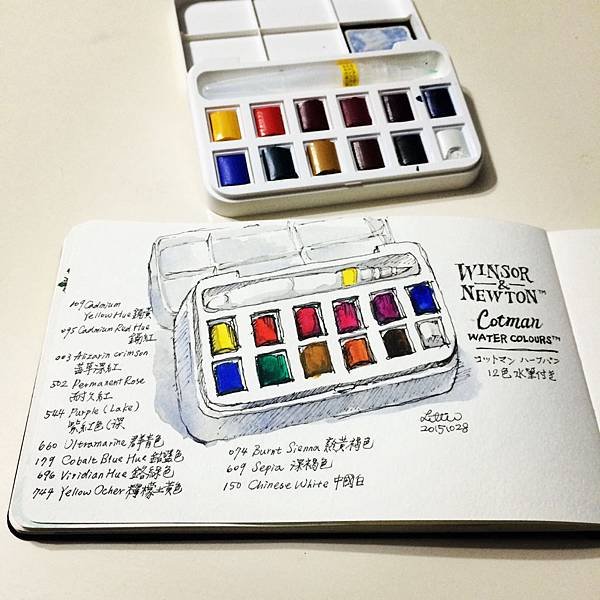 109 Cadmium
Yellow Hue 鎘黃
095 Cadmium Red Hue
鎘紅
003 Alizarin crimson
茜草深紅
502 Permanent Rose
耐久紅
544 Purple (Lake)
紫紅色(深
660 Ultramarine 群青色
179 Cobalt Blue Hue 鈷藍色
696 Viridian Hue 鉻綠色
744 Yellow Ocher 檸檬土黃色
074 Burnt Sienna 熟黃褐色
609 Sepia 深褐色
150 Chinese White 中國白
WINSOR
&
NEWTON™
Cotman
WATER COLOURS™
コットマン ハーフパン
12色水筆付き
20151028